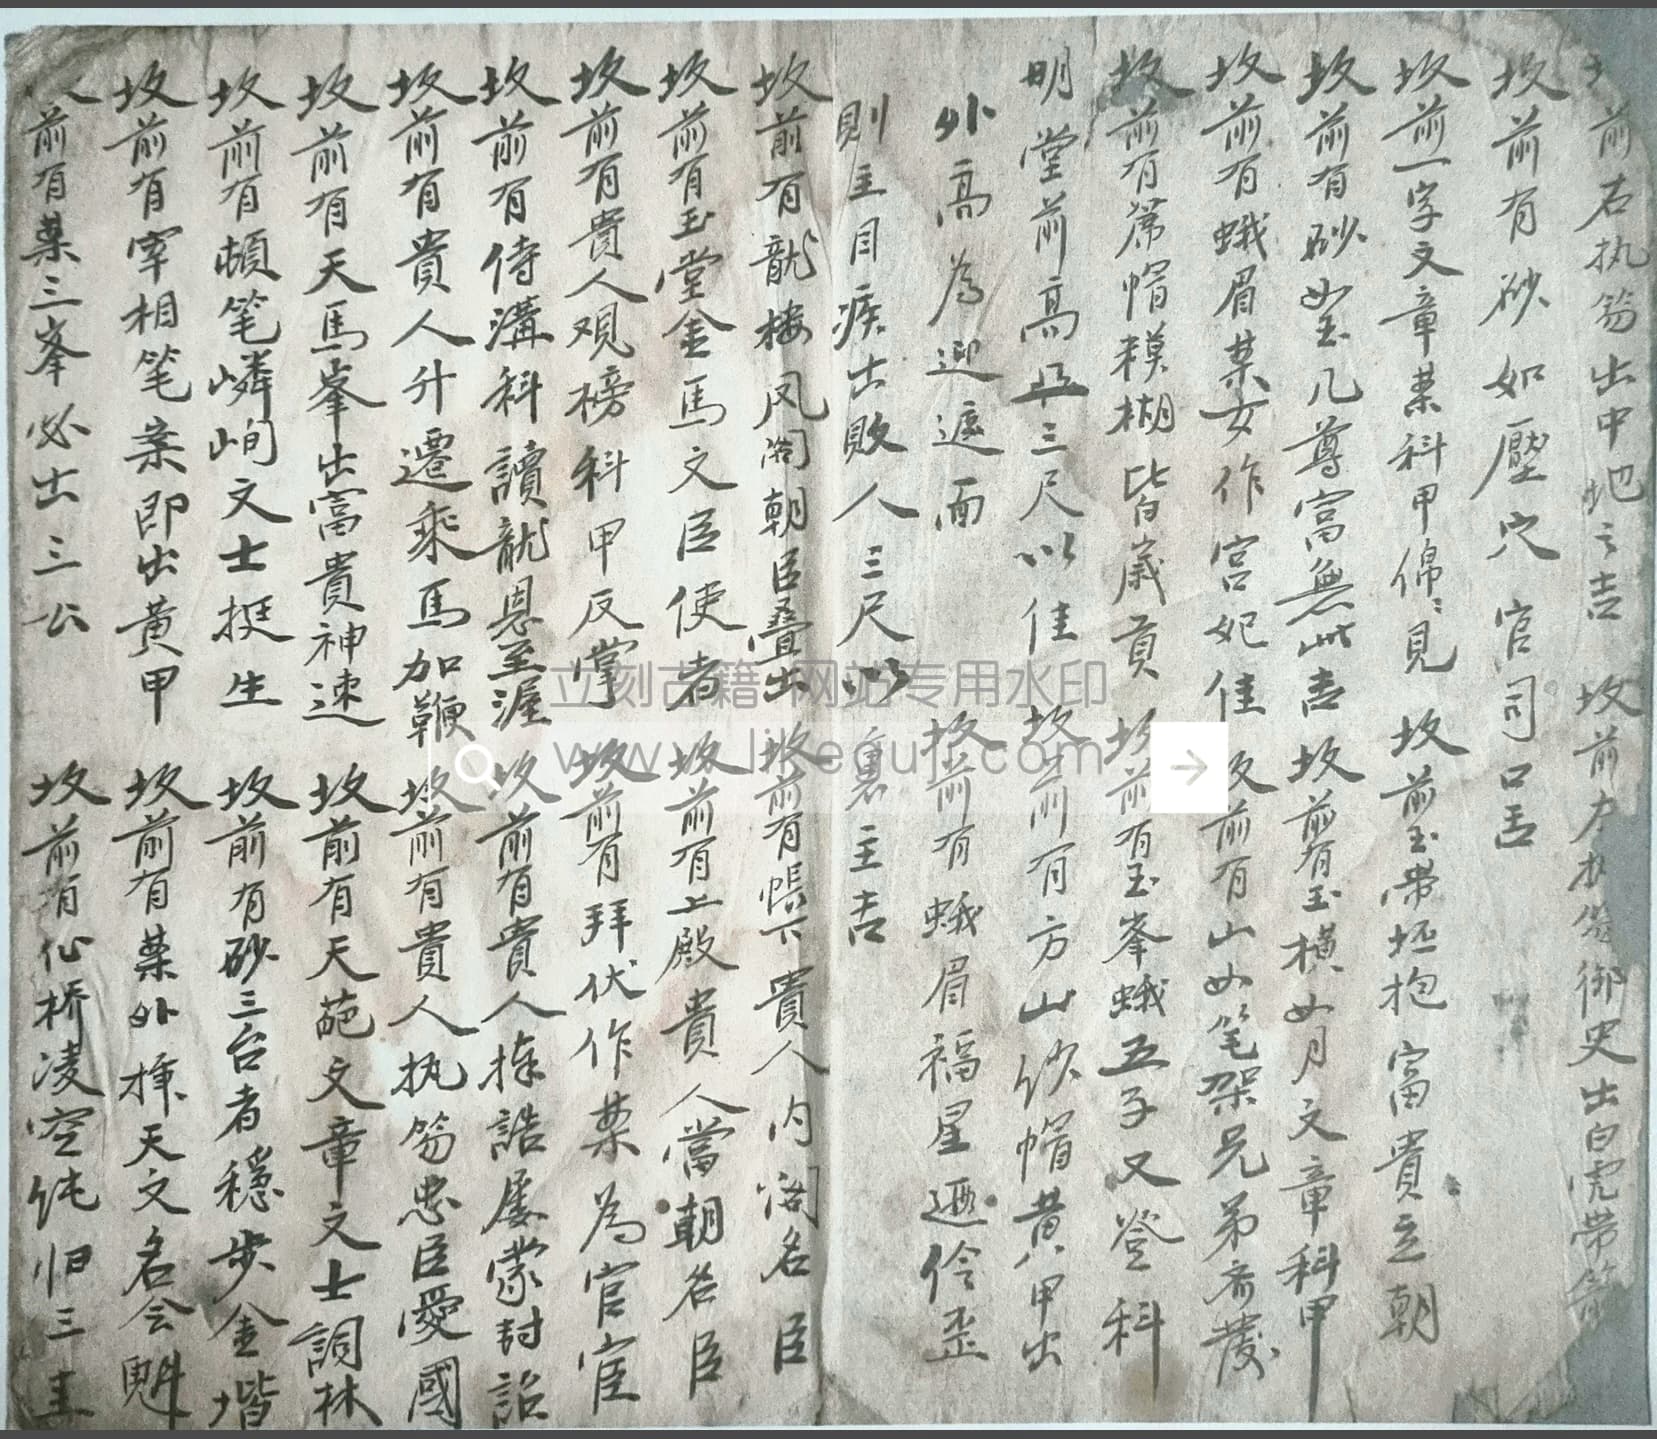 前右执笏出中地之吉 坟前左执笏御史出白虎带箭
坟前有砂如壓穴官司口舌
坟前一字文章案科甲綿綿見 坟前玉带坯抱富貴立朝
坟前有砂如玉几尊富無此吉 坟前有玉橫如月文章科甲
坟前有蛾眉案女作宫妃佳 坟前有山如笔架兄弟齐發
坟前有席帽模糊皆歲貢 坟前有玉峯蛾五子又登科
明堂前高且三尺以佳 坟前有方山纱帽黄甲出
外高為迎遮面 坟前有蛾眉福星
則主目疾出敗人三尺以裏主吉
坟前有龍楼凤阁朝臣叠出 坟前有帳下貴人内阁名臣
坟前有玉堂金馬文臣使者 坟前有上殿貴人當朝名臣
坟前有貴人观榜科甲反掌 坟前有拜伏作案為官宦
坟前有侍溝科讀龍恩至渥 坟前有貴人捧誥屡蒙封詔
坟前有貴人升遷乘馬加鞭 坟前有貴人执笏忠臣愛國
坟前有天馬峯出富貴神速 坟前有天葩文章文士詞林
坟前有頓笔嶙峋文士挺生 坟前有砂三台者穩步金堦
坟前有宰相笔案即出黄甲 坟前有案外揮天文名会魁
前有案三峯必出三公 坟前有仙桥凌空纯归三圭
立刻古籍 网站专用水印
www.likeguji.com